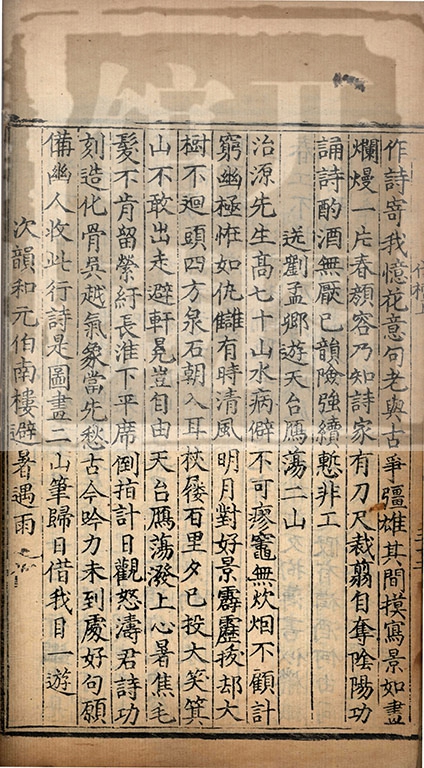 作詩寄我憶花意句老與古爭彊雄其間摸寫景如畫
爛熳一片春顔容乃知詩家有刀尺裁翦自奪陰陽功
誦詩酌酒無厭已韻險強續慙非工
送劉孟鄉遊天台鴈蕩二山
治源先生髙七十山水病僻不可瘳竈無炊烟不顧計
窮幽極恠如仇讎有時清風明月對好景霹靂後却大
樹不廻頭四方泉石朝入耳杖屨百里夕已投大笑箕
山不敢出走避軒冕豈自由天台鴈蕩潑上心暑焦毛
髮不肯留縈紆長淮下平席倒指計日觀怒濤君詩功
刻造化骨吳越氣象當先愁古今吟力未到處好句願
備幽人收此行詩是圖畫二山筆歸日借我目一遊
次韻和元伯南樓避暑遇雨